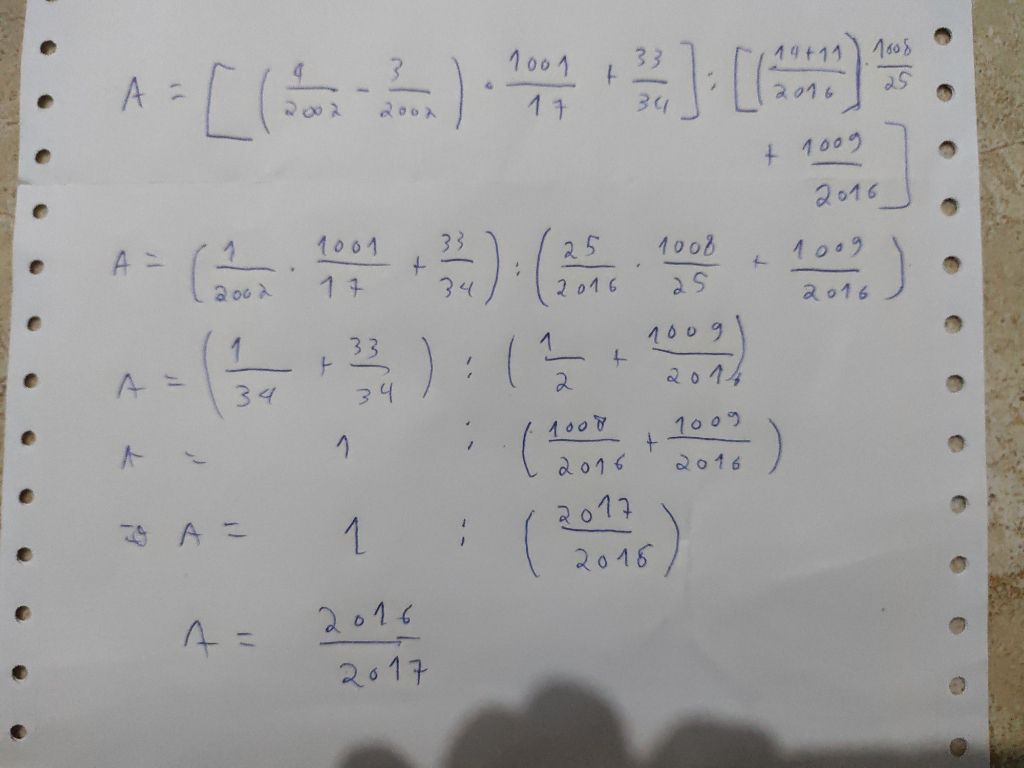 A = [(4/2002 - 3/2002) · 1001/17 + 33/34] : [(14+11/2016) · 1008/25
+ 1009/2016]
A = (1/2002 · 1001/17 + 33/34) : (25/2016 · 1008/25 + 1009/2016)
A = (1/34 + 33/34) : (1/2 + 1009/2016)
A = 1 : (1008/2016 + 1009/2016)
⇒ A = 1 : (2017/2016)
A = 2016/2017